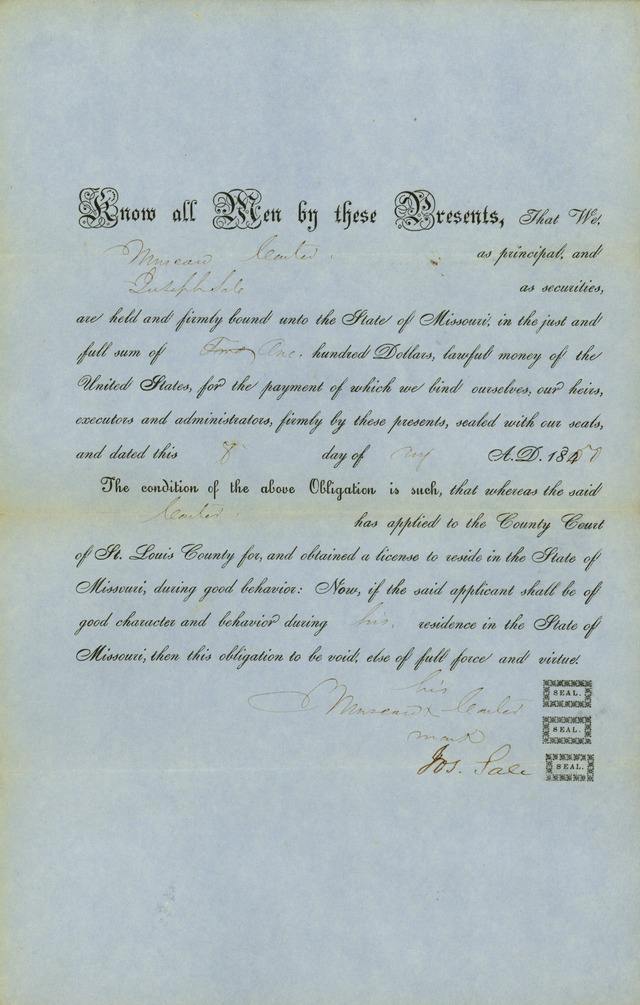 Know all Men by these Presents, That We,
Carter as principal, and
Joseph Sale as securities,
are held and firmly bound unto the State of Missouri, in the just and
full sum of One hundred Dollars, lawful money of the
United States, for the payment of which we bind ourselves, our heirs,
executors and administrators, firmly by these presents, sealed with our seals,
and dated this 8 day of A.D. 18
The condition of the above Obligation is such, that whereas the said
Carter has applied to the County Court
of St. Louis County for, and obtained a license to reside in the State of
Missouri, during good behavior: Now, if the said applicant shall be of
good character and behavior during his residence in the State of
Missouri, then this obligation to be void, else of full force and virtue.
his SEAL.
x Carter
mark SEAL.
Jos. Sale SEAL.